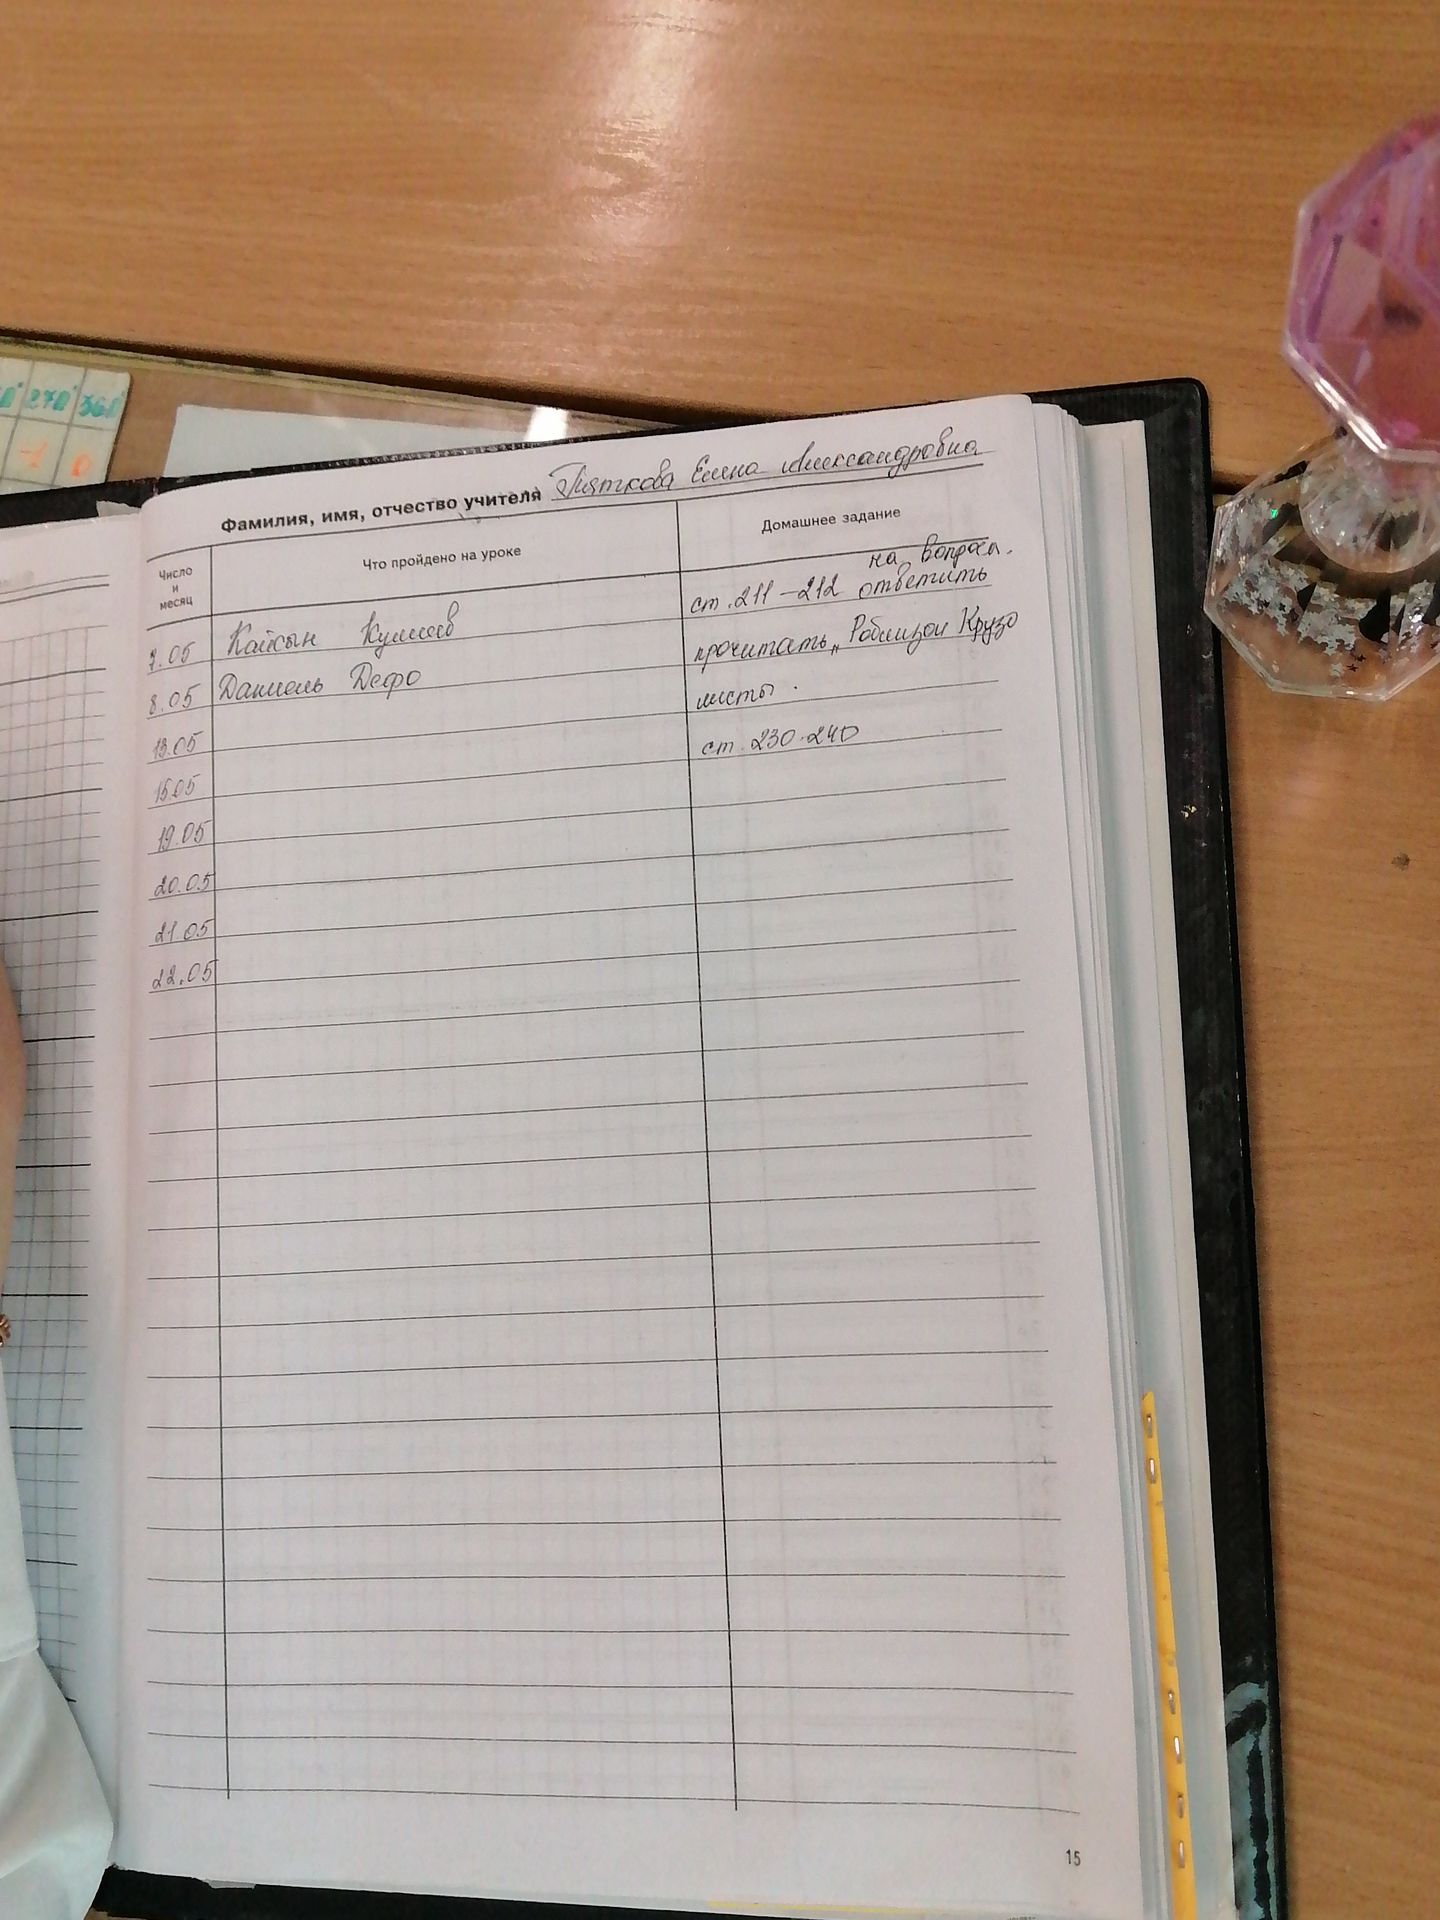 270° 360°
-1 0
Фамилия, имя, отчество учителя Пяткова Елена Александровна
Число и месяц
Что пройдено на уроке
Домашнее задание
на вопросы.
7.05 Кайсын Кулиев ст. 211-212 ответить
8.05 Даниель Дефо прочитать „Робинзон Крузо
13.05 листы.
15.05 ст. 230-240
19.05
20.05
21.05
22.05
15